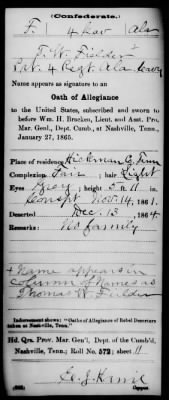 (Confederate.)
F. 4 Cav Ala
T. W. Fielder +
Pvt. 4 Regt. Ala Cavy
Name appears as signature to an
Oath of Allegiance
to the United States, subscribed and sworn to
before Wm. H. Bracken, Lieut. and Asst. Pro.
Mar. Genl., Dept. Cumb., at Nashville, Tenn.,
January 27, 1865.
Place of residence Hickman Co. Tenn
Complexion Fair; hair Light
Eyes Gray; height 5 ft. 11 in.
Conspt Nov. 14, 1861.
Deserted Dec. 13, 1864
Remarks: No family
+ Name appears in
column of Names as
Thomas W. Fielder
Indorsement shows: "Oaths of Allegiance of Rebel Deserters
taken at Nashville, Tenn."
Hd. Qrs. Pro. Mar. Gen'l, Dept. of the Cumb'd,
Nashville, Tenn.; Roll No. 572; sheet 11
Copyist.